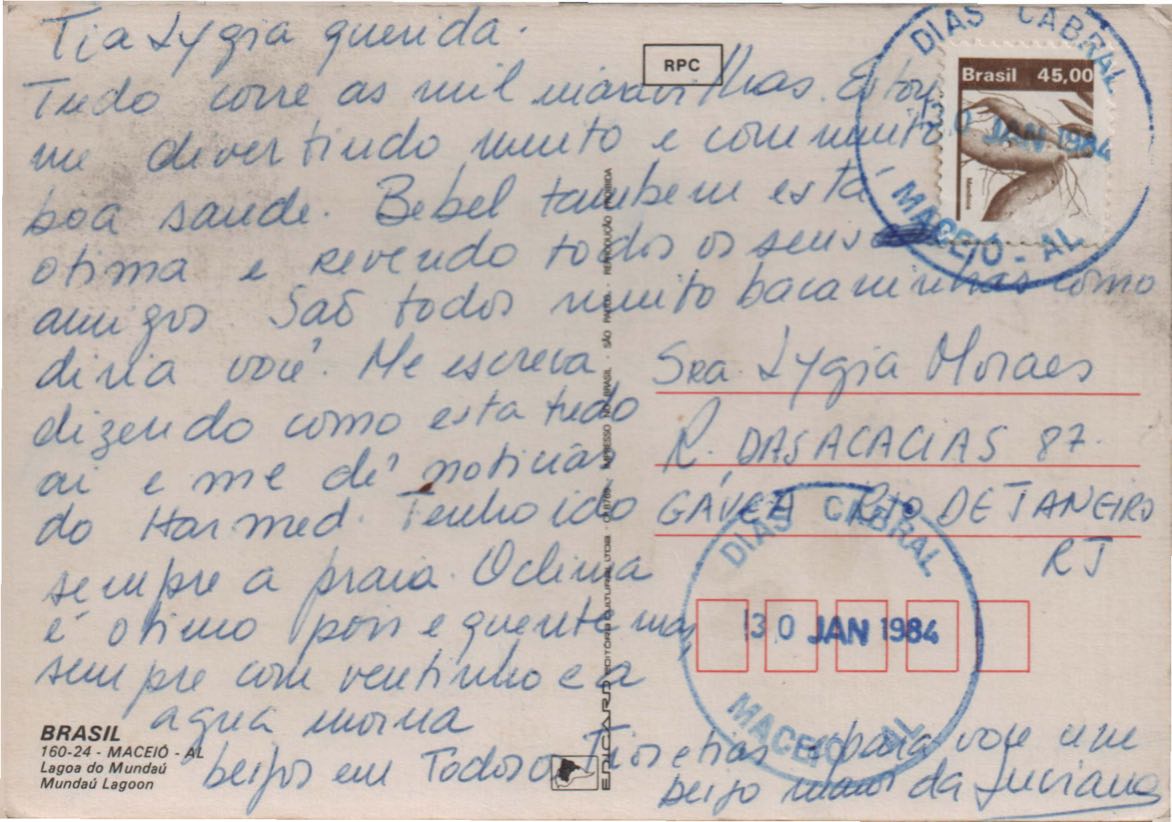 Tia Lygia querida.
Tudo corre as mil maravilhas. Estou
me divertindo muito e com muita
boa saude. Bebel tambem está
otima e revendo todos os seus
amigos São todos muito bacaninhas como
diria você. Me escreva
dizendo como esta tudo
ai e me dê noticias
do Harmed. Tenho ido
sempre a praia. O clima
é otimo pois e quente mas
sempre com ventinho e a
agua morna
beijos em Todos os Tios e tias e para voce um
beijo maior da Luciana
RPC
DIAS CABRAL
30 JAN 1984
MACEIÓ - AL
Brasil 45,00
Mandioca
Sra. Lygia Moraes
R. DAS ACACIAS 87.
GÁVEA RIO DE JANEIRO
RJ
DIAS CABRAL
30 JAN 1984
MACEIÓ - AL
BRASIL
160-24 - MACEIÓ - AL
Lagoa do Mundaú
Mundaú Lagoon
EDICARD EDITORA CULTURAL LTDA. IMPRESSO NO BRASIL - SÃO PAULO - REPRODUÇÃO PROIBIDA